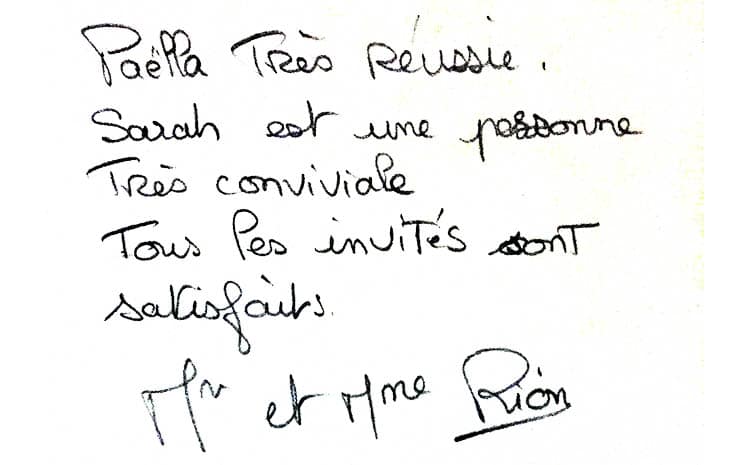 Paëlla Très Réussie.
Sarah est une personne
Très conviviale
Tous les invités sont
satisfaits.
Mr et Mme Rion